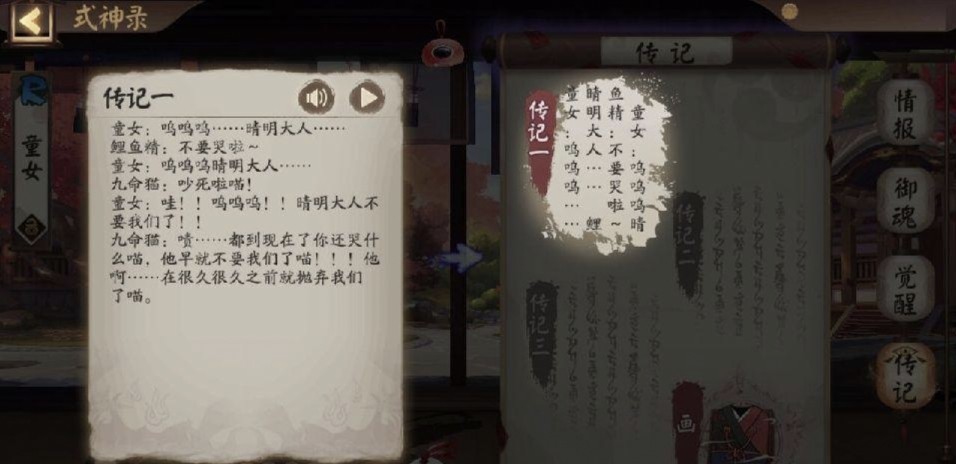 式神录
R
童女
传记一
童女：呜呜呜……晴明大人……
鲤鱼精：不要哭啦~
童女：呜呜呜晴明大人……
九命猫：吵死啦喵！
童女：哇！！呜呜呜！！晴明大人不
要我们了！！
九命猫：啧……都到现在了你还哭什
么喵，他早就不要我们了喵！！！他
啊……在很久很久之前就抛弃我们
了喵。
传记
传记一
童女：呜呜呜…
晴明大人……鲤
鱼精：不要哭啦~
童女：呜呜呜晴
传记二
传记三
画
情报
御魂
觉醒
传记